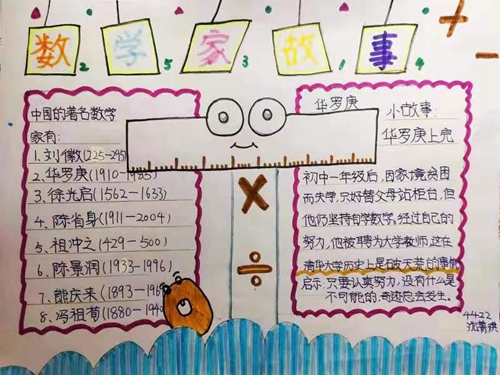 数学家故事
2 5 3 1 4
中国的著名数学
家有:
1.刘徽(225-295
2.华罗庚(1910-1985)
3.徐光启(1562-1633)
4.陈省身(1911-2004)
5.祖冲之(429-500)
6.陈景润(1933-1996)
7.熊庆来(1893-196
8.冯祖荀(1880-1940
华罗庚 小故事:
华罗庚上完
初中一年级后,因家境贫困
而失学,只好替父母站柜台,但
他仍坚持自学数学,经过自己的
努力,他被聘为大学教师,这在
清华大学历史上是破天荒的事情
启示:只要认真努力,没有什么是
不可能的,奇迹总会发生。
4422